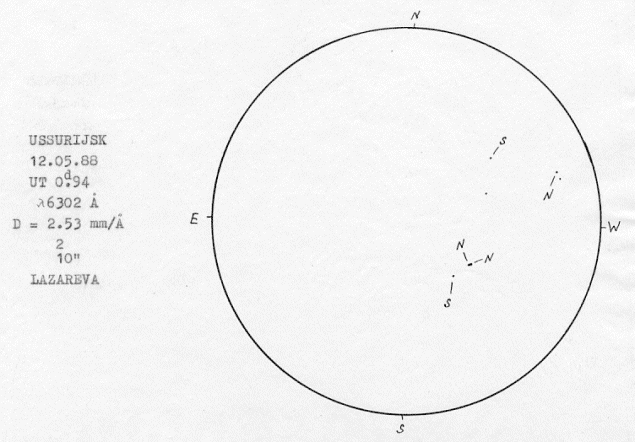 USSURIJSK
12.05.88
UT 0ᵈ.94
λ6302 Å
D = 2.53 mm/Å
2
10"
LAZAREVA
N
S
N
E
W
N
N
S
S